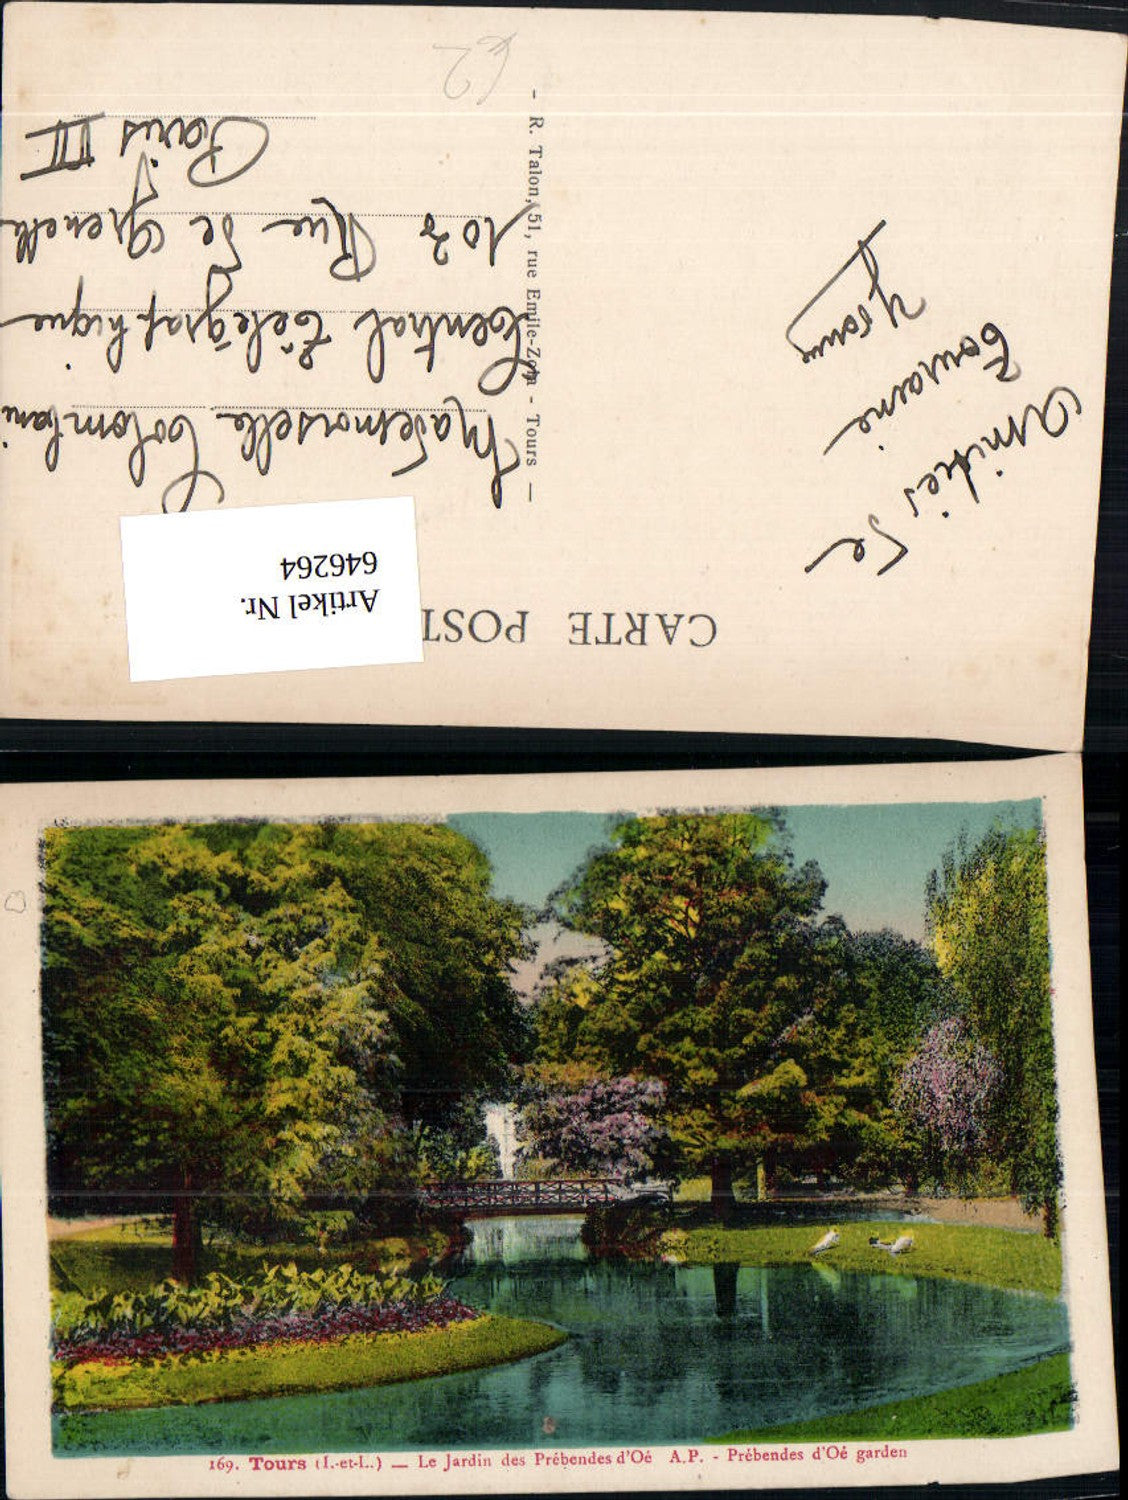 CARTE POST
Amitiés de
Touraine
Yvonne
- R. Talon, 51, rue Emile-Zola - Tours -
Mademoiselle Colombani
Central Télégraphique
103 Rue de Grenelle
Paris VII
Artikel Nr.
646264
169. Tours (I.-et-L.) — Le Jardin des Prébendes d'Oé A.P. - Prébendes d'Oé garden